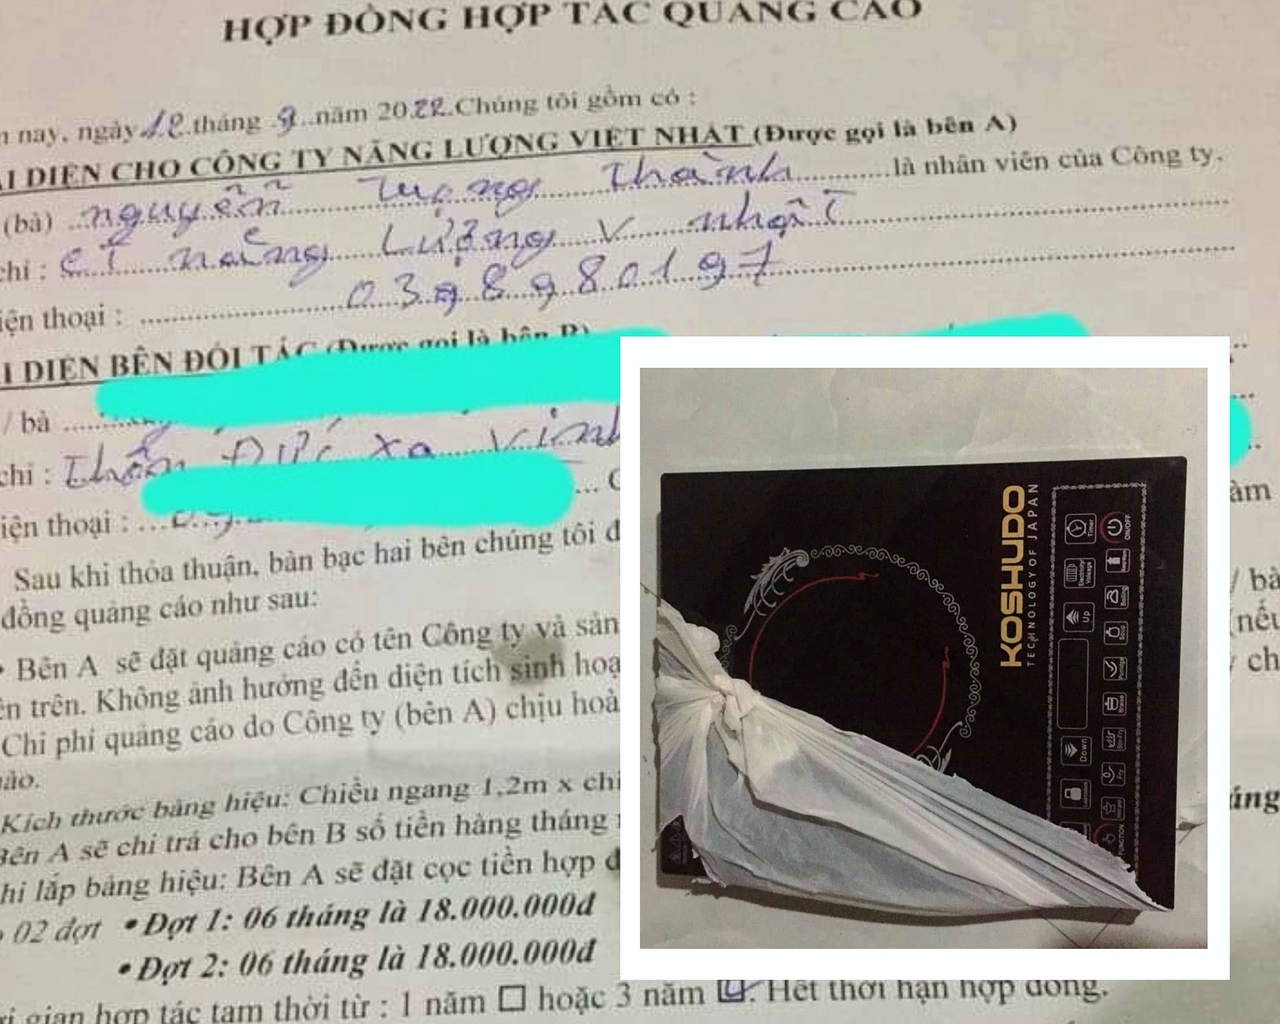 HỢP ĐỒNG HỢP TÁC QUẢNG CÁO
nay, ngày 12 tháng 9 năm 2022.Chúng tôi gồm có :
DIỆN CHO CÔNG TY NĂNG LƯỢNG VIỆT NHẬT (Được gọi là bên A)
(bà) nguyễn Trọng Thành là nhân viên của Công ty.
chỉ : CT năng Lượng V nhật
iện thoại : 0398980197
I DIỆN BÊN ĐỐI TÁC (Được gọi là bên B)
/ bà
chỉ : thôn Đức xã Vinh
iện thoại :
Sau khi thỏa thuận, bàn bạc hai bên chúng tôi đ
đồng quảng cáo như sau:
Bên A sẽ đặt quảng cáo có tên Công ty và sản
ên trên. Không ảnh hưởng đến diện tích sinh hoạ
Chi phí quảng cáo do Công ty (bên A) chịu hoà
nào.
Kích thước bảng hiệu: Chiều ngang 1,2m x chi
Bên A sẽ chi trả cho bên B số tiền hàng tháng
hi lắp bảng hiệu: Bên A sẽ đặt cọc tiền hợp đ
02 đợt • Đợt 1: 06 tháng là 18.000.000đ
• Đợt 2: 06 tháng là 18.000.000đ
i gian hợp tác tạm thời từ : 1 năm ☐ hoặc 3 năm ☑. Hết thời hạn hợp đồng.
àm
/ bà
(nếu
ch
áng
KOSHUDO
TECHNOLOGY OF JAPAN
Timer
ON/OFF
Up
Down
FUNCTION